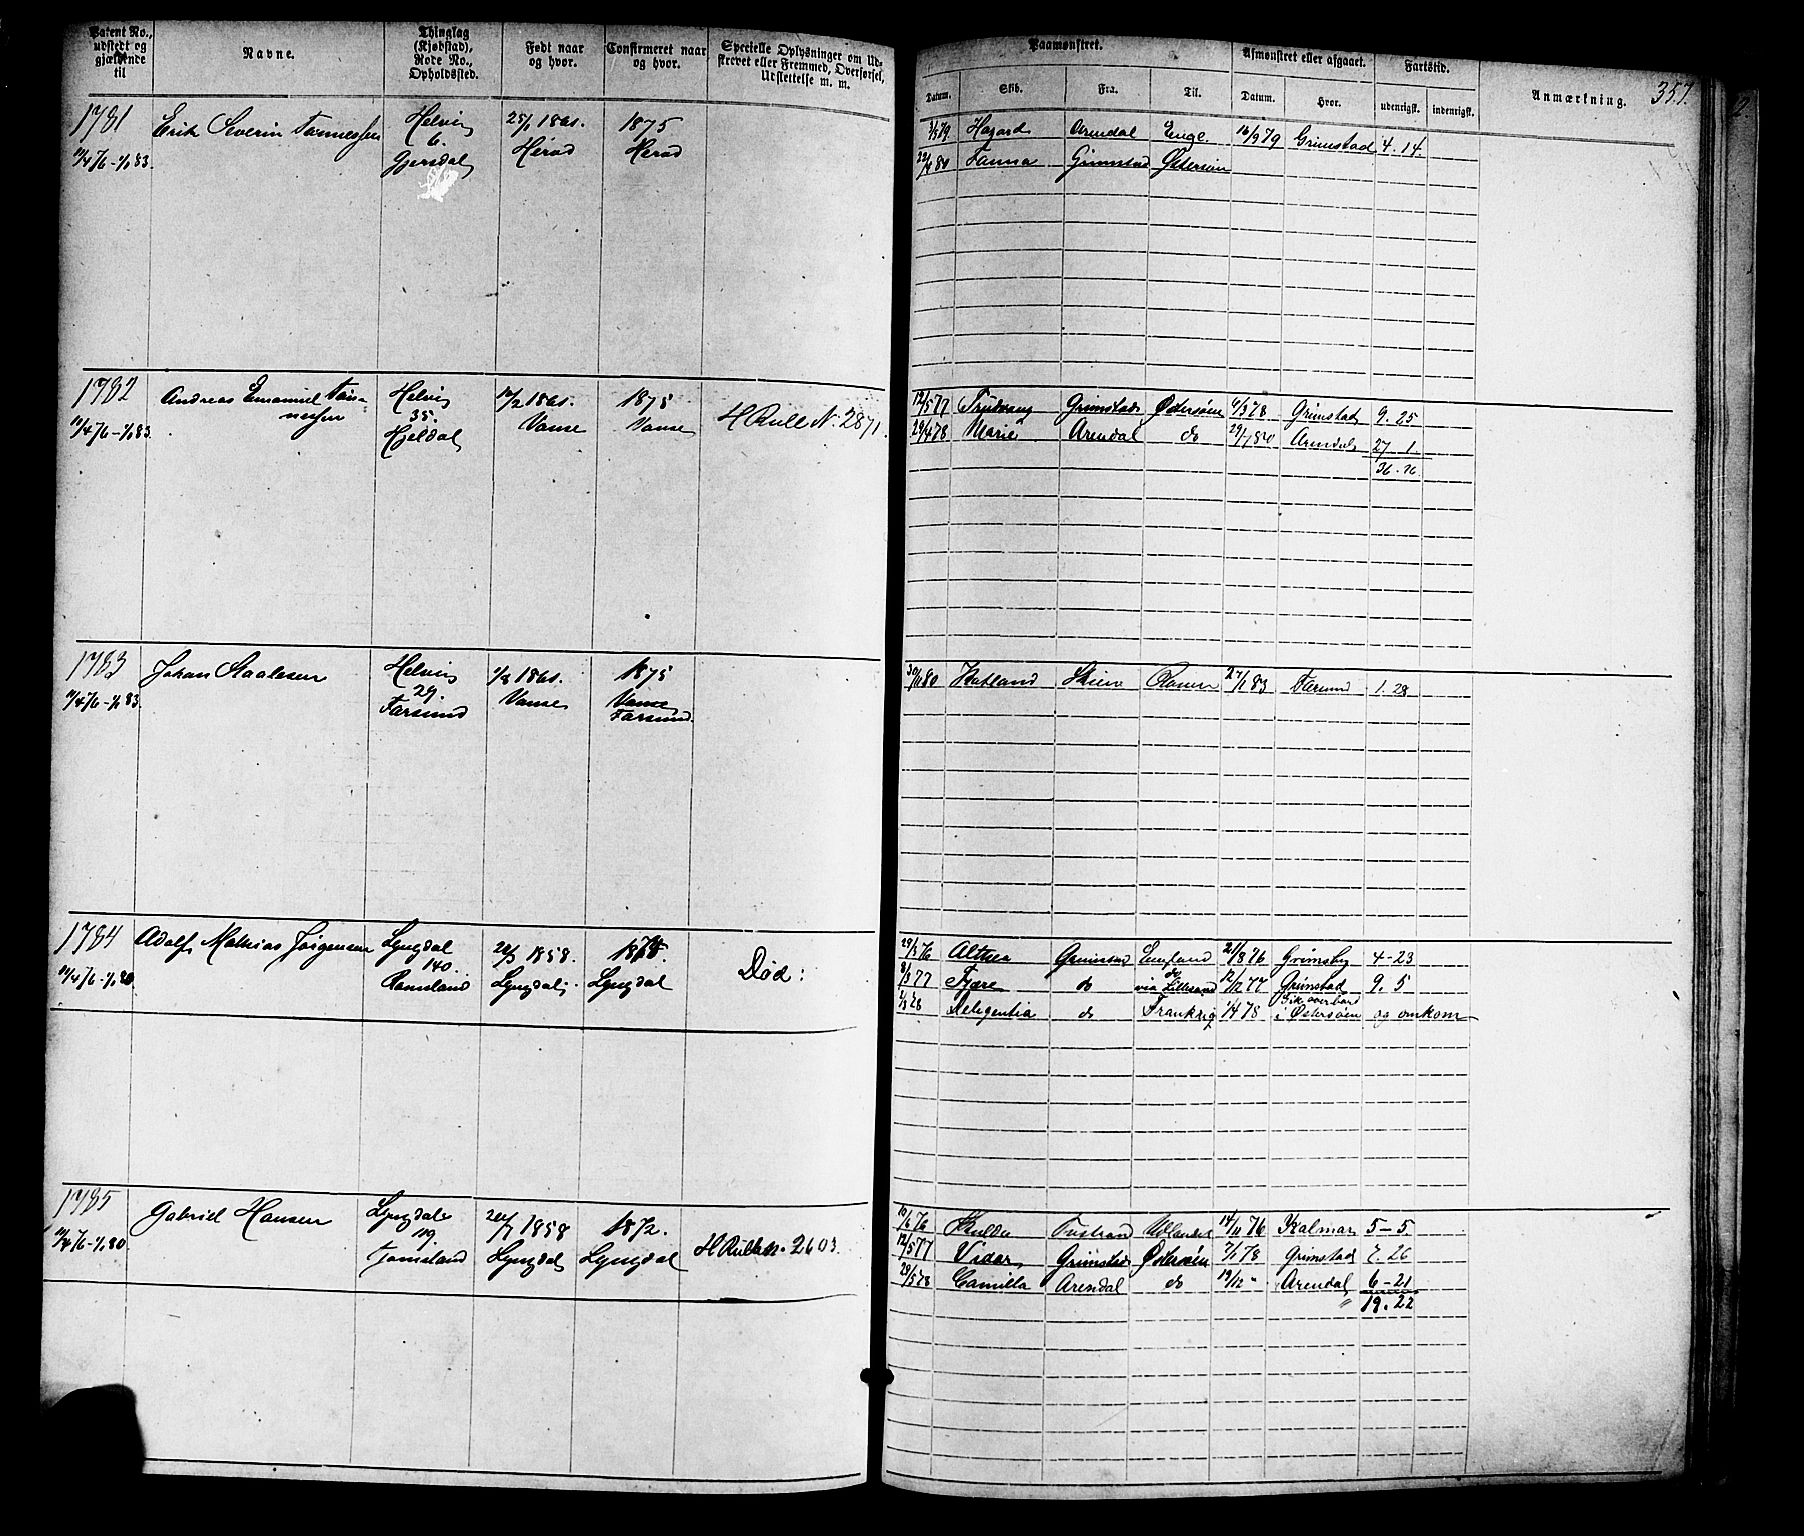 357.
Patent No., udstedt og gjældende til
Navne.
Thinglag (Kjøbstad), Rode No., Opholdssted.
Født naar og hvor.
Confirmeret naar og hvor.
Specielle Oplysninger om Udskrevet eller Fremmed, Overførsel, Udslettelse m. m.
Paamønstret.
Afmønstret eller afgaaet.
Fartstid.
Datum. Skib. Fra. Til. Datum. Hvor. udenrigsk. indenrigsk.
Anmærkning.
1781 Erik Severin Tønnessen Helvig 25/1 1861. 1875
11/4 76-1/1 83. 6. Herad Herad
Gjersdal
79 Hazard Arendal Engl. 16/9 79 Grimstad 4. 14.
22/4 80 Fauna Grimstad Østersøen
1782 Andreas Emanuel Tønnessen Helvig 1861. 1875
11/4 76-1/1 83. 35. Vanse Vanse H Rulle N. 2871.
Hjeldal
12/5 77 Grimstad Østersøen 6/3 78 Grimstad 9. 25
29/4 78 Marie Arendal do 29/7 80 Arendal 27 1.
36. 26
1783 Johan Staalesen Helvig 1/8 1861. 1875
11/4 76-1/1 83. 29. Vanse Vanse
Farsund Farsund
30/11 80 Skien 27/1 83 Farsund 1. 28
1784 Adolf Mathias Jørgensen Lyngdal 20/3 1858. 1874
11/4 76-1/1 80 140. Lyngdal Lyngdal Død:
Ramsland
29/3 76 Althea Grimstad England 21/8 76 Grimsby 4-23
8/3 77 Fjære do do via Lillesand 12/12 77 Grimstad 9. 5
2/3 78 Delegentia do Frankrig 1/4 78 Gik overbord
i Østersøen og omkom
1785 Gabriel Hansen Lyngdal 20/7 1858 1872.
11/4 76-1/1 80 119. Lyngdal Lyngdal H Rulle N. 2603.
Tomsland
10/6 76 Hulda Udlandet 14/11 76 Kalmar 5-5.
12/5 77 Vidar Grimstad Østersøen 7/1 78 Grimstad 7. 26
28/5 78 Camilla Arendal do 19/12 " Arendal 6-21
" 19. 22